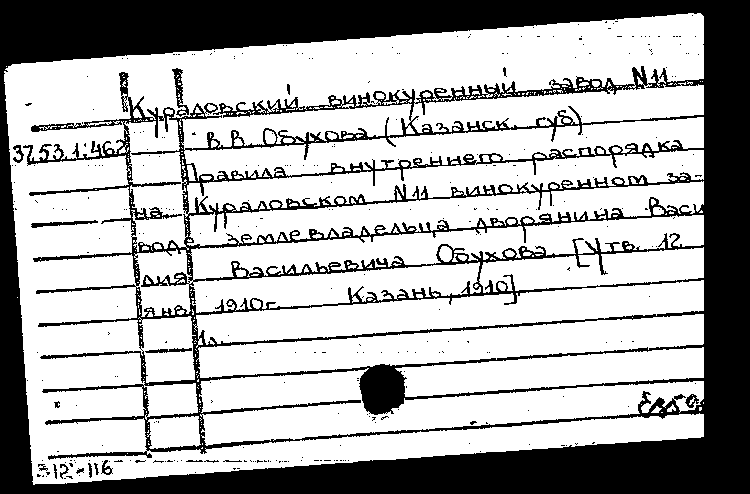 Кураловский винокуренный завод N11
37.53.1:462 В.В. Обухова. (Казанск. губ)
Правила внутреннего распорядка
на Кураловском N11 винокуренном за-
воде землевладельца дворянина Васи
лия Васильевича Обухова. [Утв. 12
янв. 1910г. Казань, 1910].
1л.
312-116